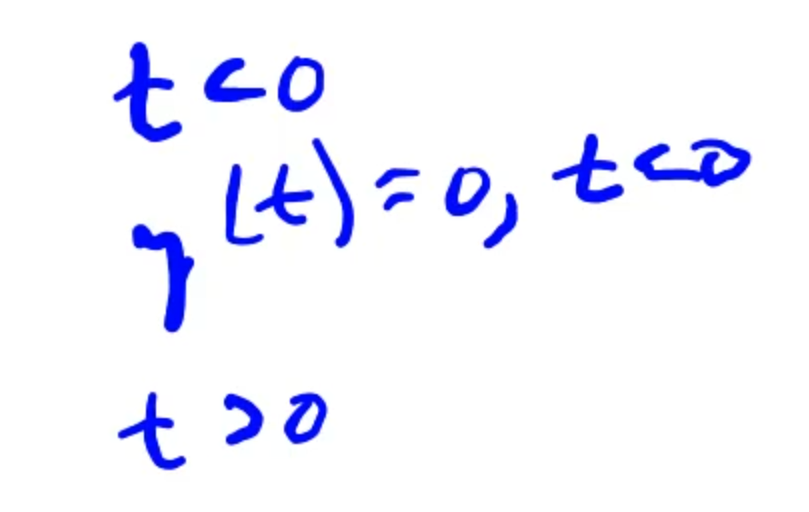 t<0
y(t)=0, t<0
t>0